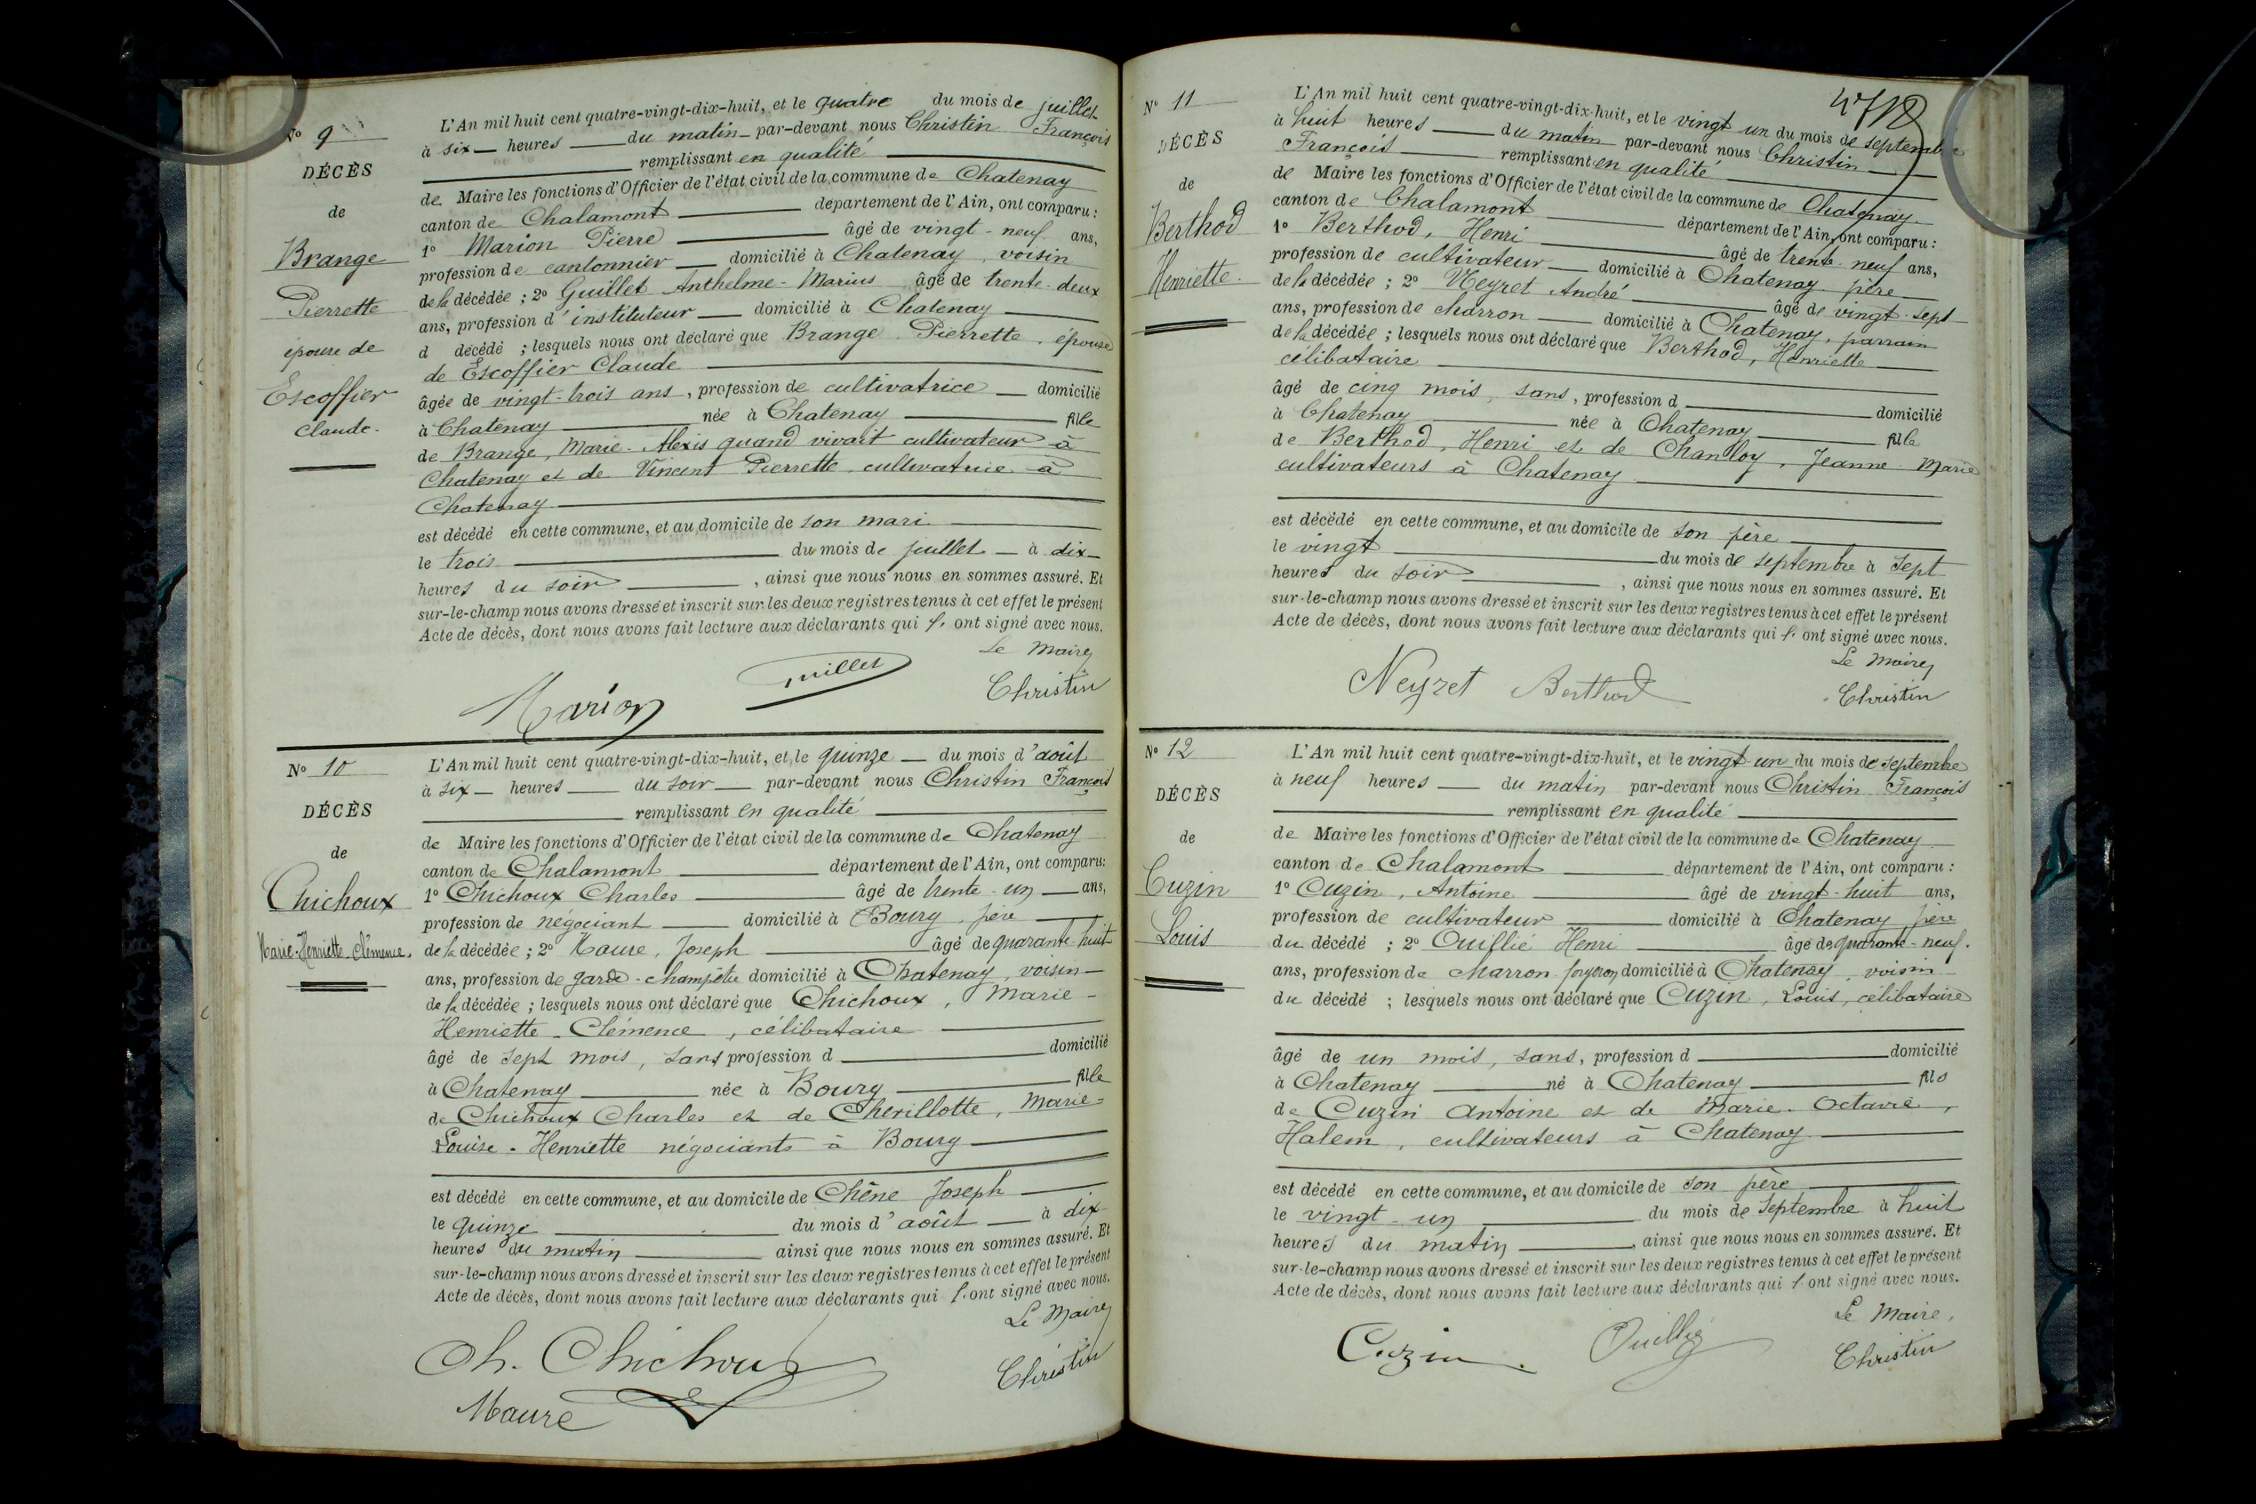 N° 9
DÉCÈS
de
Brange
Pierrette
épouse de
Escoffier
Claude.
L'An mil huit cent quatre-vingt-dix-huit, et le quatre du mois de juillet
à six heures du matin par-devant nous Christin François
remplissant en qualité
de Maire les fonctions d'Officier de l'état civil de la commune de Chatenay
canton de Chalamont département de l'Ain, ont comparu :
1° Marion Pierre âgé de vingt-neuf ans,
profession de cantonnier domicilié à Chatenay, voisin
de la décédée ; 2° Guillet Anthelme-Marius âgé de trente-deux
ans, profession d'instituteur domicilié à Chatenay
d décédé ; lesquels nous ont déclaré que Brange Pierrette, épouse
de Escoffier Claude
âgée de vingt-trois ans, profession de cultivatrice domicilié
à Chatenay née à Chatenay fille
de Brange, Marie-Alexis quand vivait cultivateur à
Chatenay et de Vincent Pierrette cultivatrice à
Chatenay
est décédé en cette commune, et au domicile de son mari
le trois du mois de juillet à dix
heures du soir, ainsi que nous nous en sommes assuré. Et
sur-le-champ nous avons dressé et inscrit sur les deux registres tenus à cet effet le présent
Acte de décès, dont nous avons fait lecture aux déclarants qui l' ont signé avec nous.
Le Maire
Marion Guillet Christin
N° 10
DÉCÈS
de
Chichoux
Marie-Henriette-Clémence.
L'An mil huit cent quatre-vingt-dix-huit, et le quinze du mois d'août
à six heures du soir par-devant nous Christin François
remplissant en qualité
de Maire les fonctions d'Officier de l'état civil de la commune de Chatenay
canton de Chalamont département de l'Ain, ont comparu:
1° Chichoux Charles âgé de trente-un ans,
profession de négociant domicilié à Bourg, père
de la décédée ; 2° Maure, Joseph âgé de quarante-huit
ans, profession de garde-champêtre domicilié à Chatenay, voisin
de la décédée ; lesquels nous ont déclaré que Chichoux, Marie-
Henriette-Clémence, célibataire
âgé de sept mois, sans profession d domicilié
à Chatenay née à Bourg fille
de Chichoux Charles et de Cherillotte, Marie-
Louise-Henriette négociants à Bourg
est décédé en cette commune, et au domicile de Chêne Joseph
le quinze du mois d'août à dix
heures du matin ainsi que nous nous en sommes assuré. Et
sur-le-champ nous avons dressé et inscrit sur les deux registres tenus à cet effet le présent
Acte de décès, dont nous avons fait lecture aux déclarants qui l' ont signé avec nous.
Le Maire
Ch. Chichoux Christin
Maure
N° 11
DÉCÈS
de
Berthod
Henriette.
L'An mil huit cent quatre-vingt-dix-huit, et le vingt un du mois de septembre
à huit heures du matin par-devant nous Christin
François remplissant en qualité
de Maire les fonctions d'Officier de l'état civil de la commune de Chatenay
canton de Chalamont département de l'Ain, ont comparu :
1° Berthod, Henri âgé de trente-neuf ans,
profession de cultivateur domicilié à Chatenay père
de la décédée ; 2° Neyret André âgé de vingt-sept
ans, profession de charron domicilié à Chatenay, parrain
de la décédée ; lesquels nous ont déclaré que Berthod, Henriette
célibataire
âgé de cinq mois, sans, profession d domicilié
à Chatenay née à Chatenay fille
de Berthod, Henri et de Chanloy, Jeanne-Marie
cultivateurs à Chatenay
est décédé en cette commune, et au domicile de son père
le vingt du mois de septembre à sept
heures du soir, ainsi que nous nous en sommes assuré. Et
sur-le-champ nous avons dressé et inscrit sur les deux registres tenus à cet effet le présent
Acte de décès, dont nous avons fait lecture aux déclarants qui l' ont signé avec nous.
Le Maire
Neyret Berthod Christin
N° 12
DÉCÈS
de
Cuzin
Louis
L'An mil huit cent quatre-vingt-dix-huit, et le vingt-un du mois de septembre
à neuf heures du matin par-devant nous Christin François
remplissant en qualité
de Maire les fonctions d'Officier de l'état civil de la commune de Chatenay
canton de Chalamont département de l'Ain, ont comparu :
1° Cuzin, Antoine âgé de vingt-huit ans,
profession de cultivateur domicilié à Chatenay père
du décédé ; 2° Ouillié Henri âgé de quarante-neuf.
ans, profession de charron forgeron domicilié à Chatenay, voisin
du décédé ; lesquels nous ont déclaré que Cuzin, Louis, célibataire
âgé de un mois, sans, profession d domicilié
à Chatenay né à Chatenay fils
de Cuzin Antoine et de Marie-Octavie,
Halem, cultivateurs à Chatenay
est décédé en cette commune, et au domicile de son père
le vingt-un du mois de septembre à huit
heures du matin, ainsi que nous nous en sommes assuré. Et
sur-le-champ nous avons dressé et inscrit sur les deux registres tenus à cet effet le présent
Acte de décès, dont nous avons fait lecture aux déclarants qui l' ont signé avec nous.
Le Maire,
Cuzin Ouillié Christin